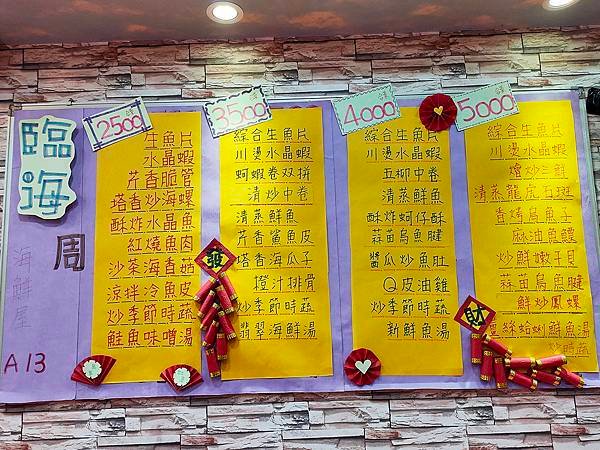 臨海
周
海鮮屋
A13
2500
生魚片
水晶蝦
芹香脆管
塔香炒海螺
酥炸水晶魚
紅燒魚肉
沙茶海香菇
涼拌冷魚皮
炒季節時蔬
鮭魚味噌湯
3500
綜合生魚片
川燙水晶蝦
蚵蝦卷双拼
清炒中卷
清蒸鮮魚
芹香鯊魚皮
塔香海瓜子
橙汁排骨
炒季節時蔬
翡翠海鮮湯
發
4000
綜合生魚片
川燙水晶蝦
五柳中卷
清蒸鮮魚
酥炸蚵仔酥
蒜苗烏魚腱
醬瓜炒魚肚
Q皮油雞
炒季節時蔬
新鮮魚湯
5000
綜合生魚片
川燙水晶蝦
燴炒三鮮
清蒸龍虎石斑
香烤烏魚子
麻油魚鰾
炒鮮嫩干貝
蒜苗烏魚腱
鮮炒鳳螺
絲蛤蜊雞魚湯
時蔬
財